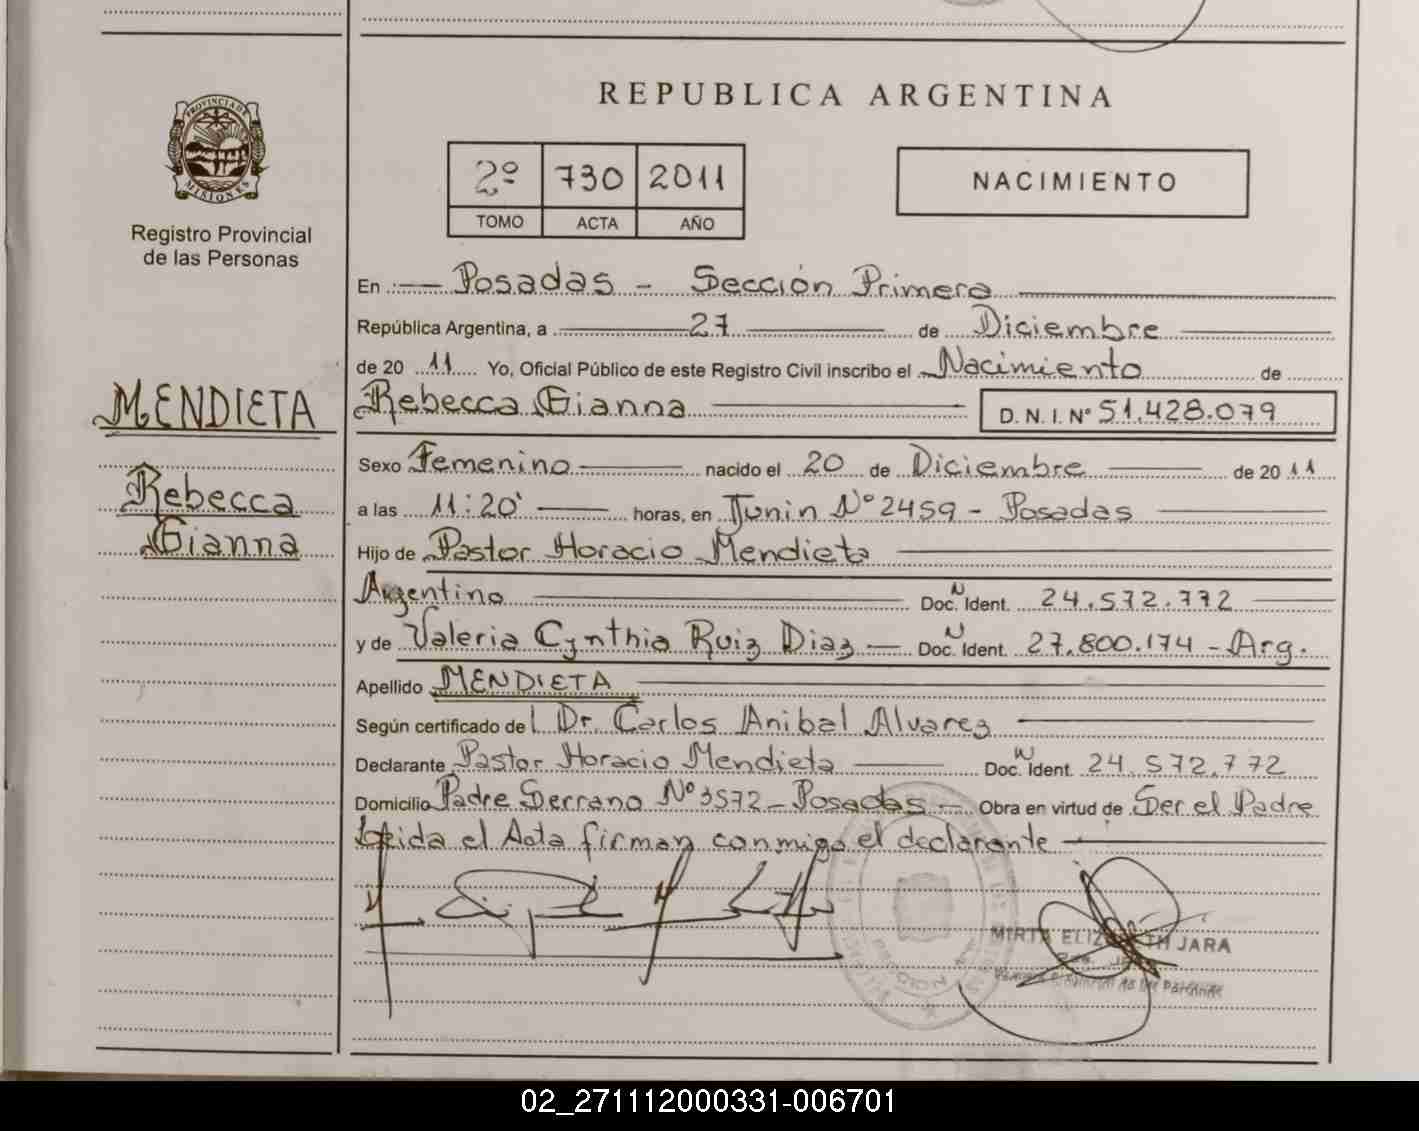 REPUBLICA ARGENTINA
PROVINCIA DE
MISIONES
Registro Provincial
de las Personas
2º 730 2011
TOMO ACTA AÑO
NACIMIENTO
MENDIETA
Rebecca
Gianna
En Posadas - Sección Primera
República Argentina, a 27 de Diciembre
de 20 11 Yo, Oficial Público de este Registro Civil inscribo el Nacimiento de
Rebecca Gianna D.N.I. Nº 51.428.079
Sexo Femenino nacido el 20 de Diciembre de 20 11
a las 11:20' horas, en Junin Nº 2459 - Posadas
Hijo de Pastor Horacio Mendieta
Argentino Doc. N Ident. 24.572.772
y de Valeria Cynthia Ruiz Diaz Doc. N Ident. 27.800.174 - Arg.
Apellido MENDIETA
Según certificado del Dr. Carlos Anibal Alvarez
Declarante Pastor Horacio Mendieta Doc. N Ident. 24.572.772
Domicilio Padre Serrano Nº 3572 - Posadas - Obra en virtud de Ser el Padre
Leida el Acta firman conmigo el declarante
MIRTA ELIZABETH JARA
02_271112000331-006701